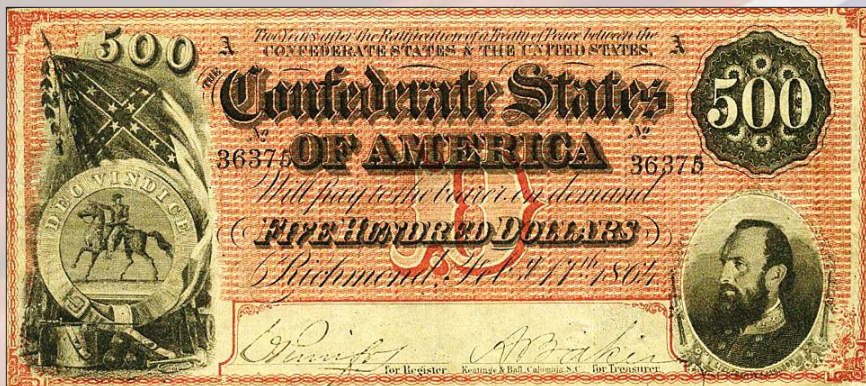 500
A
Two Years after the Ratification of a Treaty of Peace between the
A
CONFEDERATE STATES & THE UNITED STATES,
THE
Confederate States
500
No
No
36375
OF AMERICA
36375
D
DEO VINDICE
Will pay to the bearer on demand
FIVE HUNDRED DOLLARS
Richmond, Feb.y 17th 1864
for Register
Keatinge & Ball, Columbia, S.C.
for Treasurer